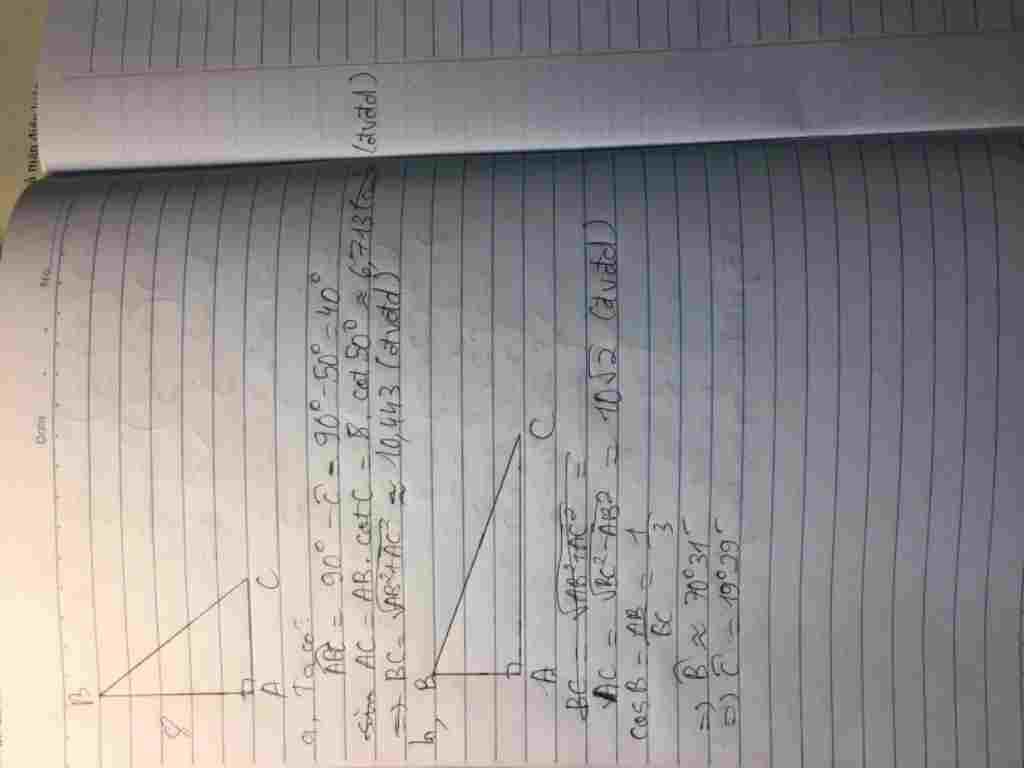 No.
B
8
A
C
a, Ta có:
ABC = 90° - Ĉ = 90° - 50° = 40°
AC = AB. cot C = 8. cot 50° ≈ 6,713 (đvđd)
=> BC = √AB²+AC² ≈ 10,443 (đvđd)
b,
B
A
C
BC = √AB²+AC² =
AC = √BC²-AB² = 10√2 (đvđd)
cos B = AB/BC = 1/3
=> B̂ ≈ 70°31'
=> Ĉ = 19°29'